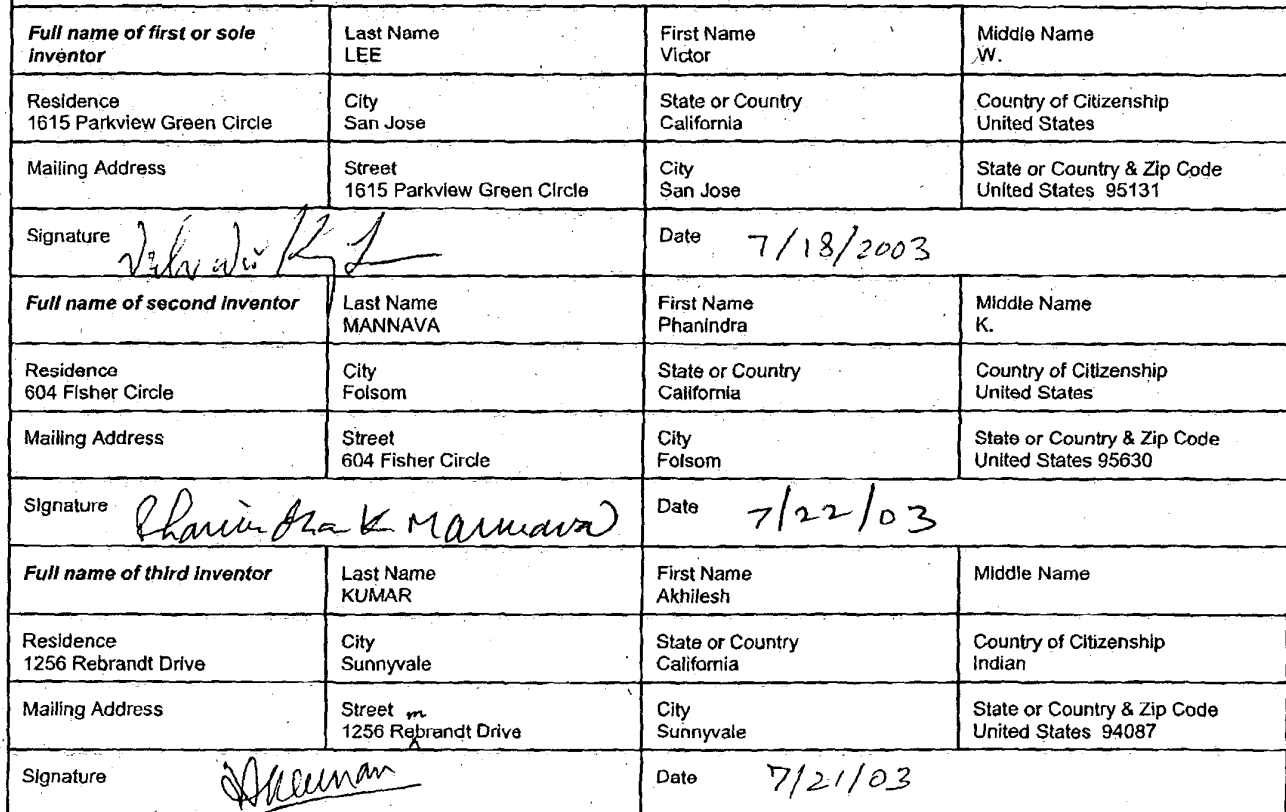 Full name of first or sole inventor
Last Name
LEE
First Name
Victor
Middle Name
W.
Residence
1615 Parkview Green Circle
City
San Jose
State or Country
California
Country of Citizenship
United States
Mailing Address
Street
1615 Parkview Green Circle
City
San Jose
State or Country & Zip Code
United States 95131
Signature
Date 7/18/2003
Full name of second inventor
Last Name
MANNAVA
First Name
Phanindra
Middle Name
K.
Residence
604 Fisher Circle
City
Folsom
State or Country
California
Country of Citizenship
United States
Mailing Address
Street
604 Fisher Circle
City
Folsom
State or Country & Zip Code
United States 95630
Signature Phanindra K Mannava
Date 7/22/03
Full name of third inventor
Last Name
KUMAR
First Name
Akhilesh
Middle Name
Residence
1256 Rebrandt Drive
City
Sunnyvale
State or Country
California
Country of Citizenship
Indian
Mailing Address
Street m
1256 Rebrandt Drive
City
Sunnyvale
State or Country & Zip Code
United States 94087
Signature
Date 7/21/03